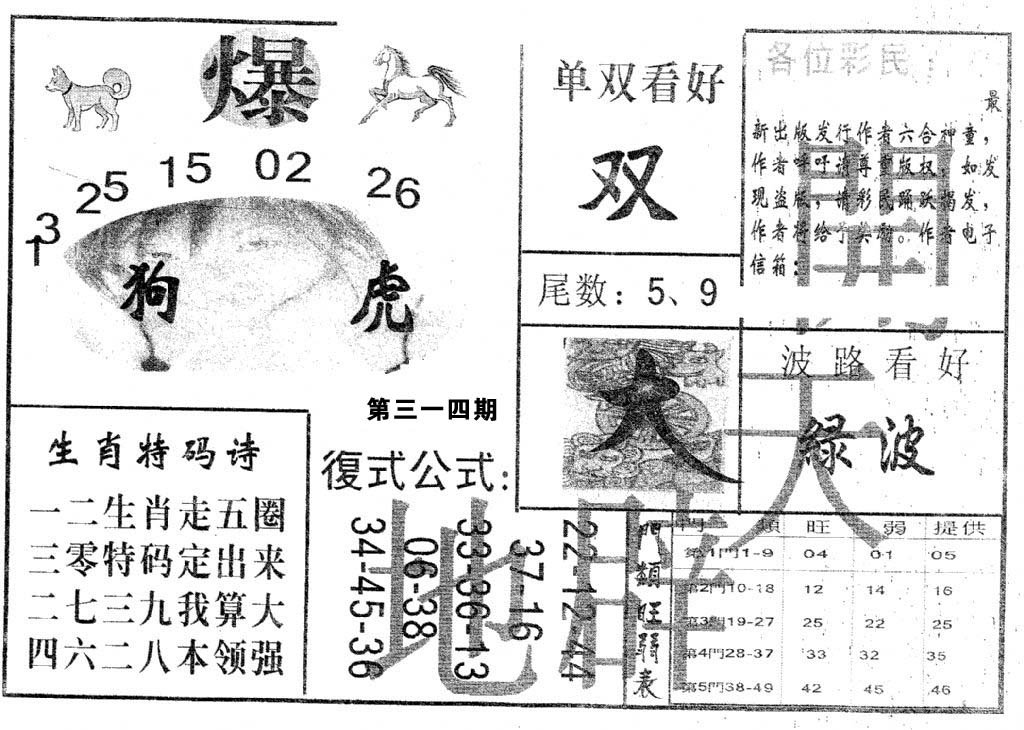 爆
13
25
15
02
26
狗
虎
第三一四期
生肖特码诗
一二生肖走五圈
三零特码定出来
二七三九我算大
四六二八本领强
復式公式:
34-45-36
06-38
33-36-13
37-16
22-12-44
单双看好
双
尾数:5、9
大
各位彩民:
最
新出版发行作者六合神童,
作者呼吁请尊重版权,如发
现盗版,请彩民踊跃揭发,
作者将给予奖励。作者电子
信箱:
波路看好
緑波
門類旺弱表
門類 旺 弱 提供
第1門1-9 04 01 05
第2門10-18 12 14 16
第3門19-27 25 22 25
第4門28-37 33 32 35
第5門38-49 42 45 46
天
地